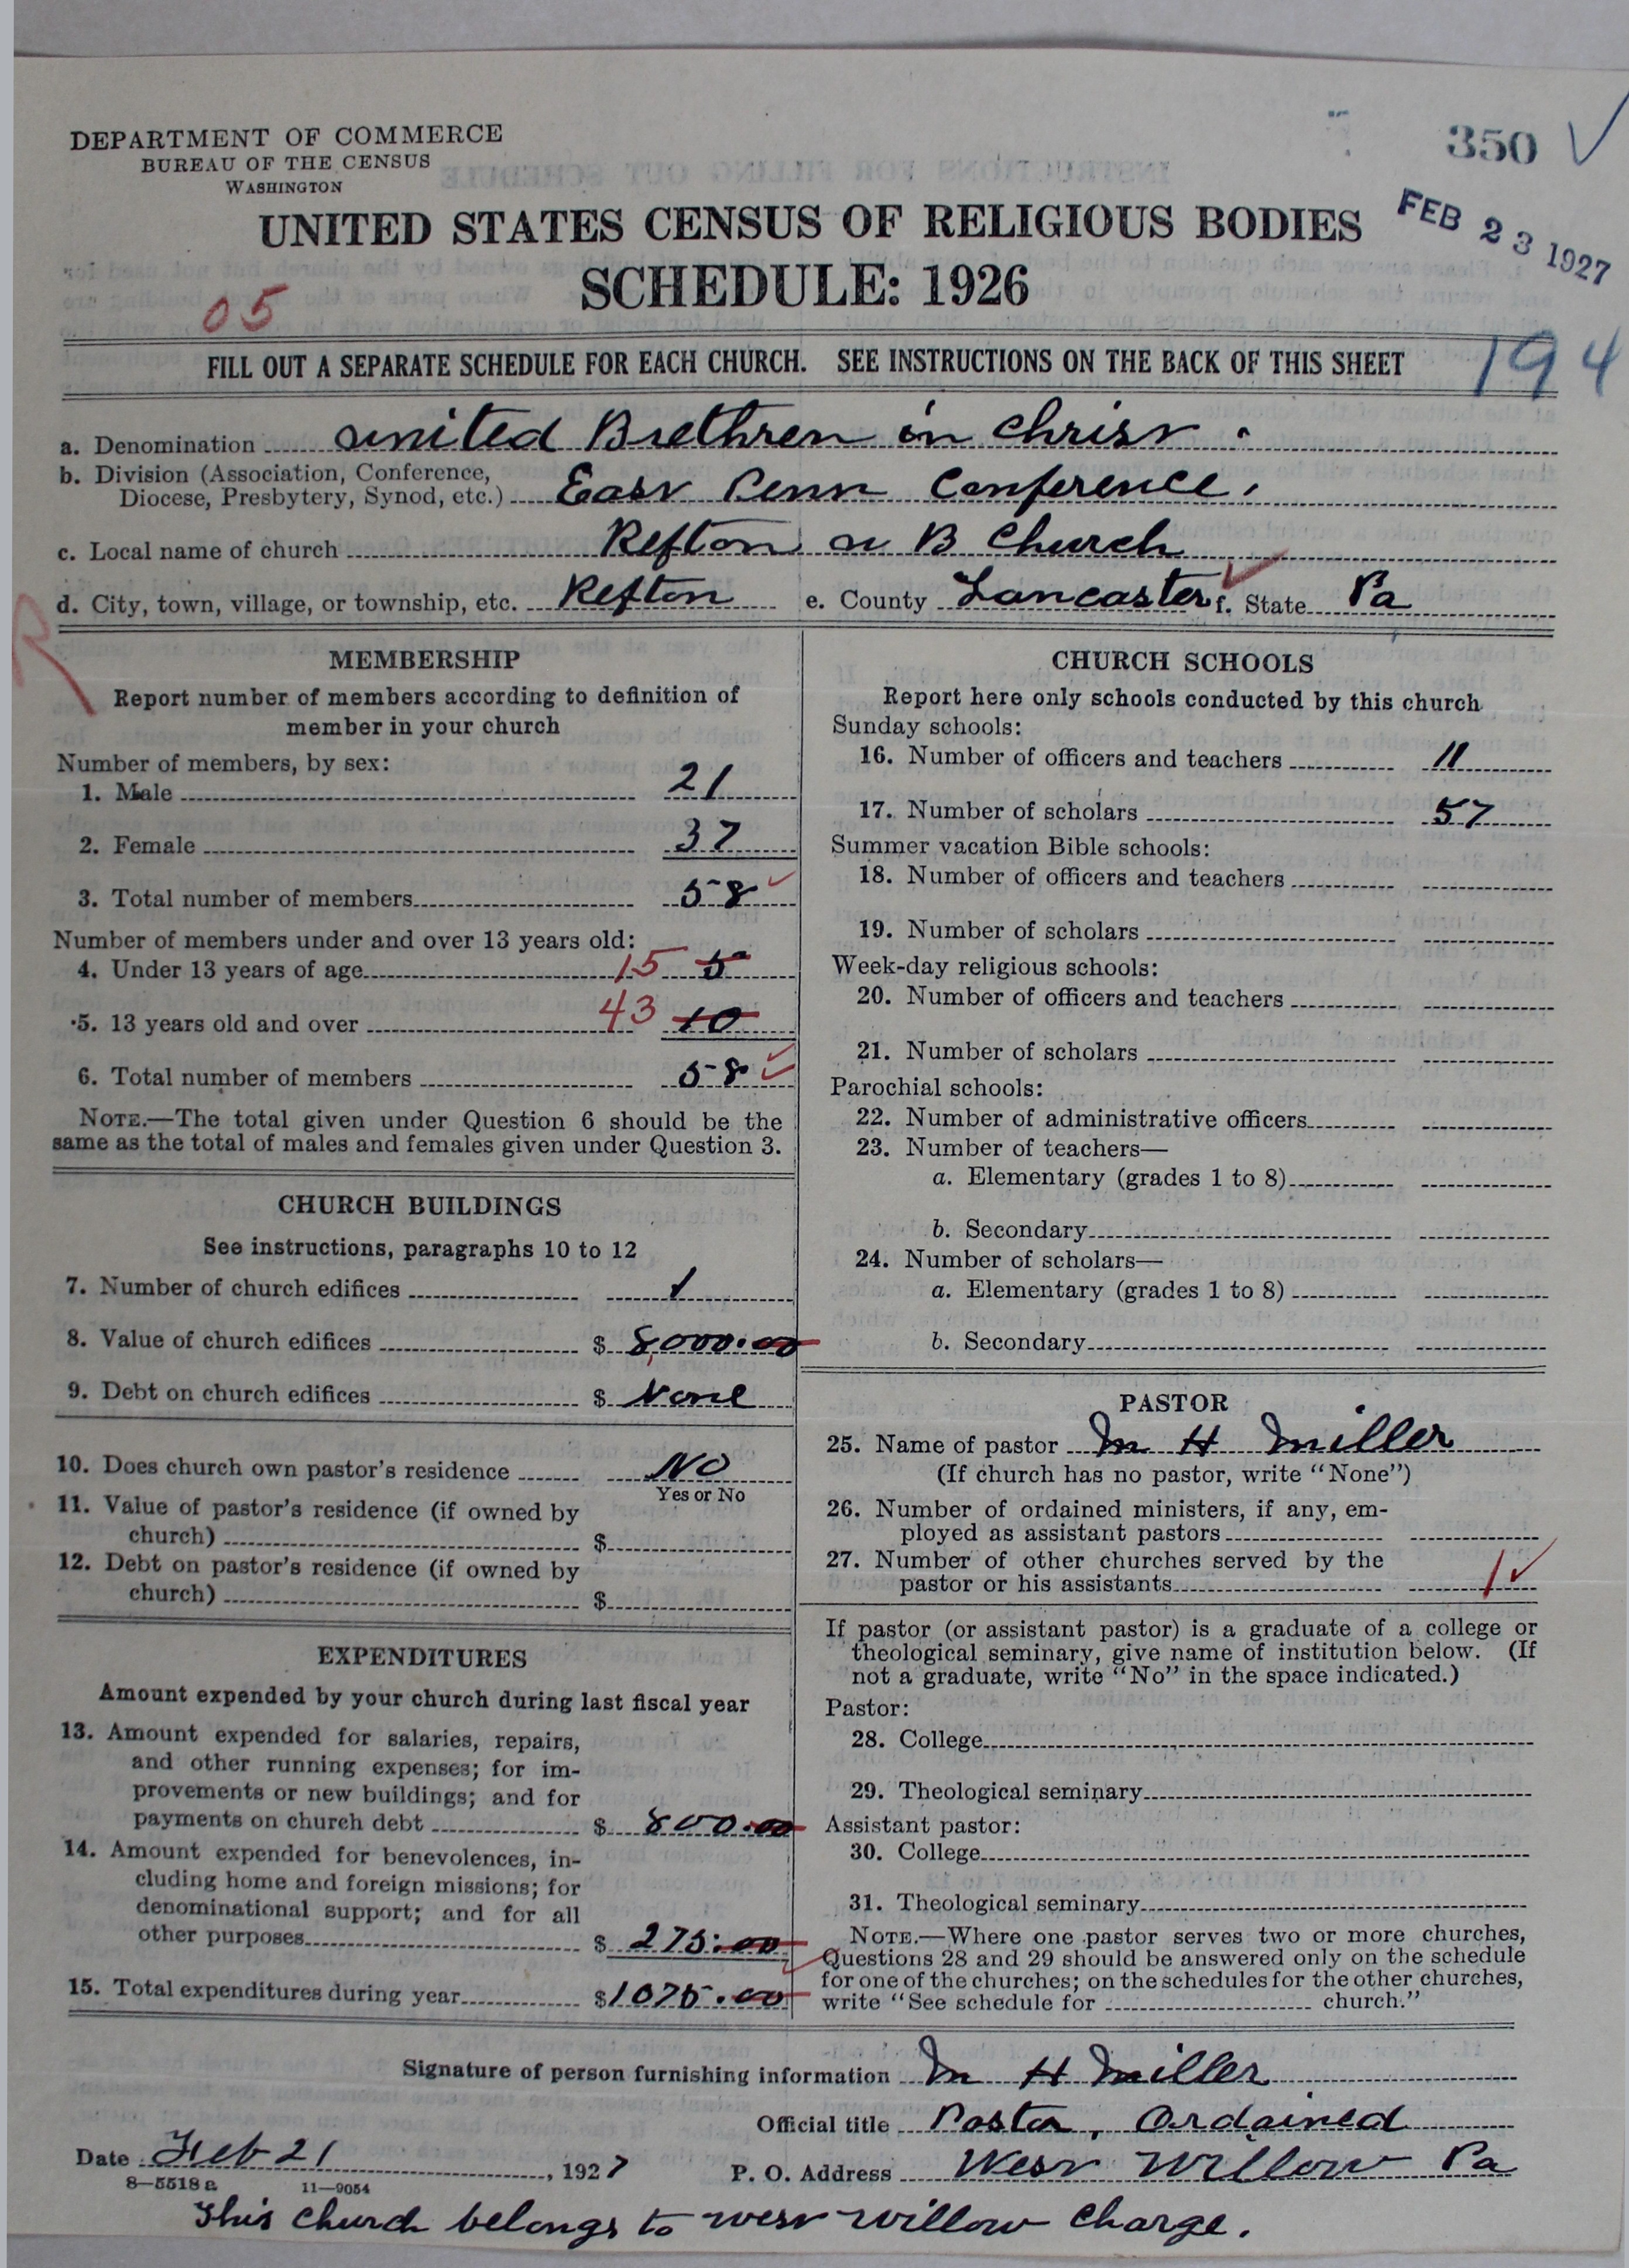 350 ✓
DEPARTMENT OF COMMERCE
BUREAU OF THE CENSUS
WASHINGTON
UNITED STATES CENSUS OF RELIGIOUS BODIES
FEB 23 1927
SCHEDULE: 1926
05
FILL OUT A SEPARATE SCHEDULE FOR EACH CHURCH. SEE INSTRUCTIONS ON THE BACK OF THIS SHEET
194
a. Denomination United Brethren in Christ.
b. Division (Association, Conference,
Diocese, Presbytery, Synod, etc.) East Penn Conference.
c. Local name of church Refton U B Church
d. City, town, village, or township, etc. Refton e. County Lancaster f. State Pa
R
MEMBERSHIP
Report number of members according to definition of
member in your church
Number of members, by sex:
1. Male 21
2. Female 37
3. Total number of members 58 ✓
Number of members under and over 13 years old:
4. Under 13 years of age 15 5
5. 13 years old and over 43 10
6. Total number of members 58 ✓
NOTE.—The total given under Question 6 should be the
same as the total of males and females given under Question 3.
CHURCH BUILDINGS
See instructions, paragraphs 10 to 12
7. Number of church edifices 1
8. Value of church edifices $ 8,000.00
9. Debt on church edifices $ None
10. Does church own pastor's residence No
Yes or No
11. Value of pastor's residence (if owned by
church) $
12. Debt on pastor's residence (if owned by
church) $
EXPENDITURES
Amount expended by your church during last fiscal year
13. Amount expended for salaries, repairs,
and other running expenses; for im-
provements or new buildings; and for
payments on church debt $ 800.00
14. Amount expended for benevolences, in-
cluding home and foreign missions; for
denominational support; and for all
other purposes $ 275.00
15. Total expenditures during year $ 1075.00
CHURCH SCHOOLS
Report here only schools conducted by this church
Sunday schools:
16. Number of officers and teachers 11
17. Number of scholars 57
Summer vacation Bible schools:
18. Number of officers and teachers
19. Number of scholars
Week-day religious schools:
20. Number of officers and teachers
21. Number of scholars
Parochial schools:
22. Number of administrative officers
23. Number of teachers—
a. Elementary (grades 1 to 8)
b. Secondary
24. Number of scholars—
a. Elementary (grades 1 to 8)
b. Secondary
PASTOR
25. Name of pastor M H Miller
(If church has no pastor, write "None")
26. Number of ordained ministers, if any, em-
ployed as assistant pastors
27. Number of other churches served by the
pastor or his assistants 1 ✓
If pastor (or assistant pastor) is a graduate of a college or
theological seminary, give name of institution below. (If
not a graduate, write "No" in the space indicated.)
Pastor:
28. College
29. Theological seminary
Assistant pastor:
30. College
31. Theological seminary
NOTE.—Where one pastor serves two or more churches,
Questions 28 and 29 should be answered only on the schedule
for one of the churches; on the schedules for the other churches,
write "See schedule for church."
Signature of person furnishing information M H Miller
Official title Pastor, Ordained
Date Feb 21, 1927 P. O. Address West Willow Pa
8—5518 a 11—9054
This church belongs to West Willow Charge.